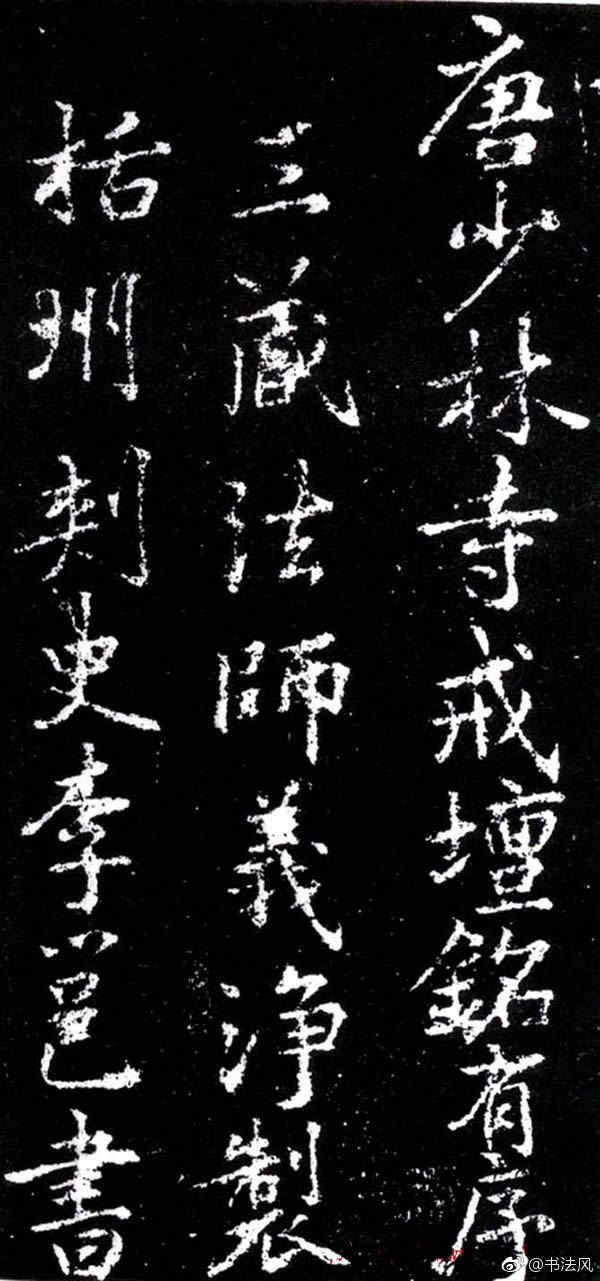 唐少林寺戒壇銘有序
三藏法師義淨製
括州刺史李邕書
@书法风